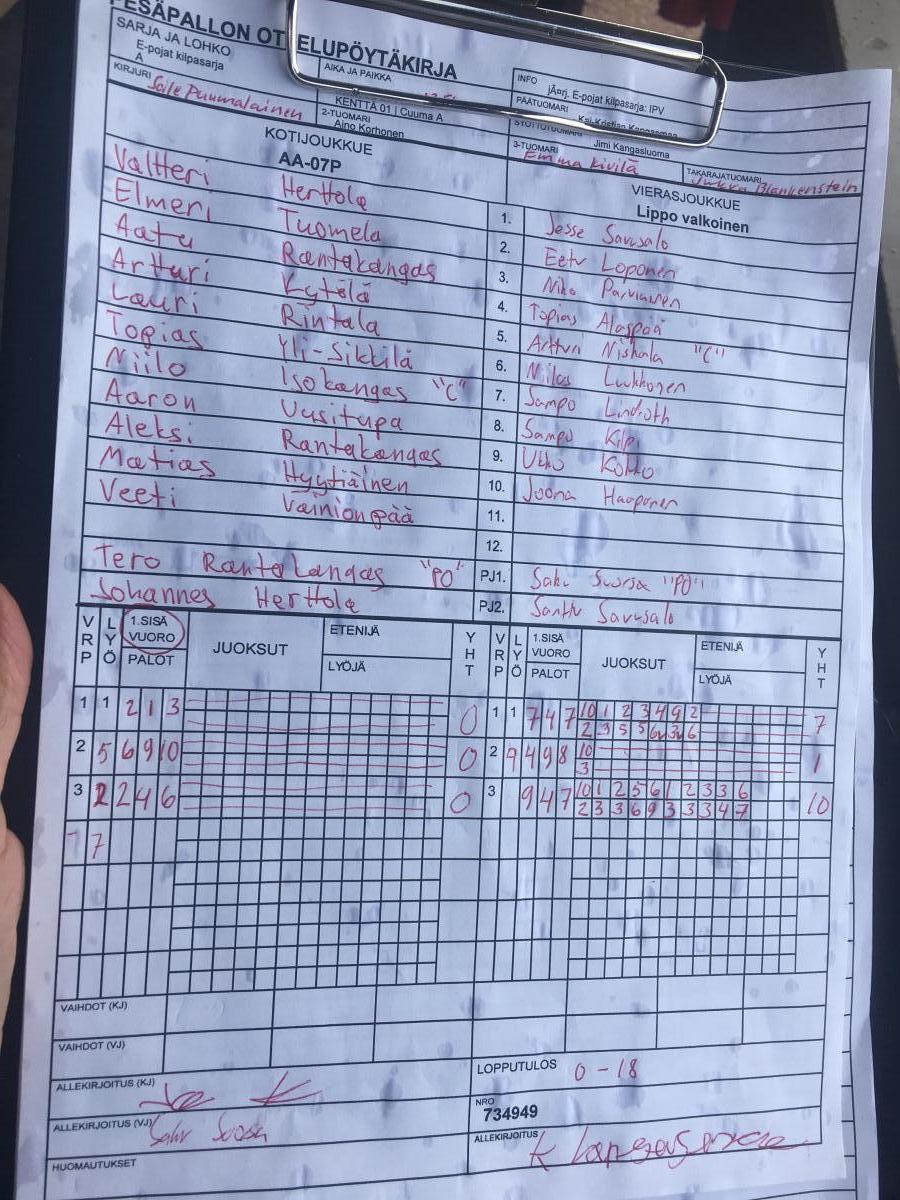 PESÄPALLON OTTELUPÖYTÄKIRJA
SARJA JA LOHKO
E-pojat kilpasarja
A
AIKA JA PAIKKA
KENTTÄ 01 | Cuuma A
INFO
jÃ¤rj. E-pojat kilpasarja: IPV
KIRJURI Soile Puumalainen
2-TUOMARI
Aino Korhonen
PÄÄTUOMARI
Jimi Kangasluoma
3-TUOMARI
Emma Kivilä
TAKARAJATUOMARI
Jukka Blankenstein
KOTIJOUKKUE
AA-07P
VIERASJOUKKUE
Lippo valkoinen
Valtteri Herttola 1. Jesse Savusalo
Elmeri Tuomela 2. Eetu Loponen
Aatu Rantakangas 3. Niko Parviainen
Artturi Kytölä 4. Topias Alaspää
Lauri Rintala 5. Artturi Niskala "C"
Topias Yli-Sikkilä 6. Niilas Luukkonen
Niilo Isokangas "C" 7. Sampo Lindroth
Aaron Uusitupa 8. Sampo
Aleksi Rantakangas 9. Ukko
Matias Hyytiäinen 10. Joona Haaponen
Veeti Vainionpää 11.
12.
Tero Rantakangas "PO" PJ1. Saku Suorsa "PO"
Johannes Herttola PJ2. Santtu Savusalo
VRP LYÖ 1.SISÄ VUORO PALOT JUOKSUT ETENIJÄ LYÖJÄ YHT VRP LYÖ 1.SISÄ VUORO PALOT JUOKSUT ETENIJÄ LYÖJÄ YHT
1 1 2 1 3 0 1 1 7 4 7 10 1 2 3 4 9 2 7
2 3 5 5
2 5 6 9 10 0 2 9 4 9 8 10 1
3
3 2 2 4 6 0 3 9 4 7 10 1 2 5 6 1 2 3 3 6 10
2 3 3 6 9 3 3 3 4 7
7
VAIHDOT (KJ)
VAIHDOT (VJ)
ALLEKIRJOITUS (KJ)
LOPPUTULOS 0 - 18
ALLEKIRJOITUS (VJ) Saku Suorsa
NRO
734949
ALLEKIRJOITUS
HUOMAUTUKSET